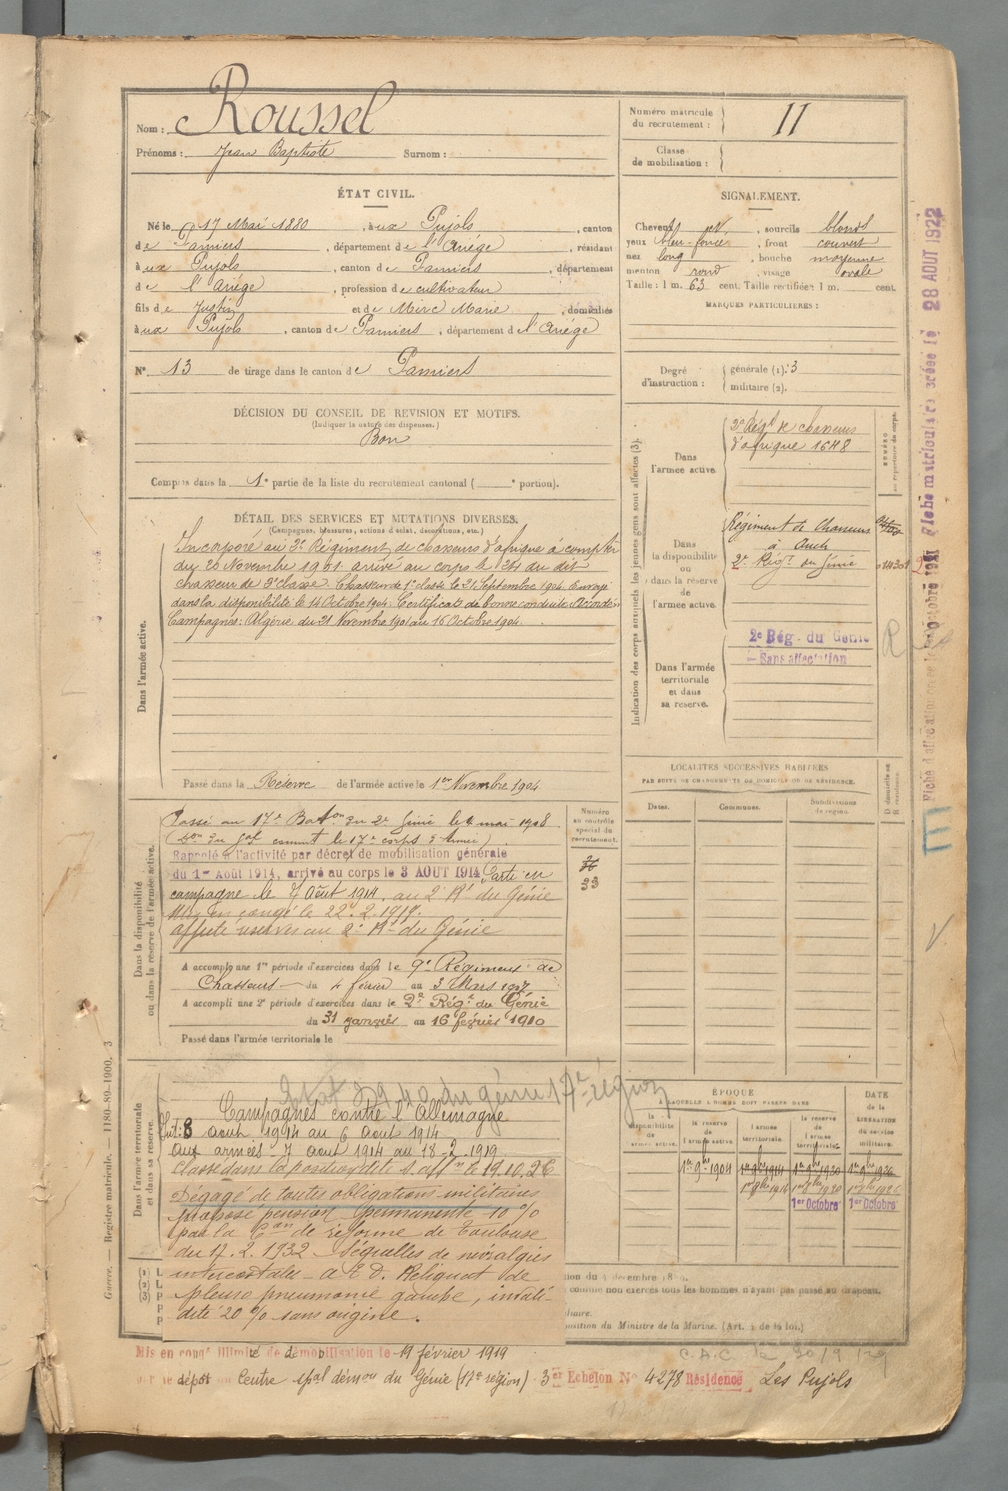 Nom : Roussel
Prénoms : Jean Baptiste Surnom :
Numéro matricule du recrutement : 11
Classe de mobilisation :
ÉTAT CIVIL.
Né le 17 Mai 1880, à ux Pujols, canton
de Pamiers, département de l'Ariége, résidant
à ux Pujols, canton de Pamiers, département
de l'Ariége, profession de cultivateur
fils de Justin et de Mirc Marie, domiciliés
à ux Pujols, canton de Pamiers, département de l'Ariége
N° 13 de tirage dans le canton de Pamiers
SIGNALEMENT.
Cheveux, sourcils blonds
yeux bleu-foncé, front couvert
nez long, bouche moyenne
menton rond, visage ovale
Taille : 1 m. 63 cent. Taille rectifiée : 1 m. cent.
MARQUES PARTICULIÈRES :
Degré d'instruction : générale (1). 3
militaire (2).
DÉCISION DU CONSEIL DE REVISION ET MOTIFS.
(Indiquer la nature des dispenses.)
Bon
Compris dans la 1e partie de la liste du recrutement cantonal ( e portion).
DÉTAIL DES SERVICES ET MUTATIONS DIVERSES.
(Campagnes, blessures, actions d'éclat, décorations, etc.)
Dans l'armée active.
Incorporé au 3e Régiment de chasseurs d'afrique à compter
du 20 Novembre 1901 arrivé au corps le 21 du dit
chasseur de 2e classe. Chasseur de 1e classe le 21 Septembre 1904. Envoyé
dans la disponibilité le 14 Octobre 1904. Certificat de bonne conduite Accordé.
Campagnes : Algérie du 21 Novembre 1901 au 16 Octobre 1904.
Passé dans la Réserve de l'armée active le 1er Novembre 1904
Indication des corps auxquels les jeunes gens sont affectés (3).
Dans l'armée active.
3e Régt de chasseurs
d'afrique 1648
Dans la disponibilité ou dans la réserve de l'armée active.
Régiment de Chasseurs
à Auch
2e Régt du Génie
Dans l'armée territoriale et dans sa réserve.
2e Rég. du Génie
Sans affectation
LOCALITÉS SUCCESSIVES HABITÉES
PAR SUITE DE CHANGEMENTS DE DOMICILE OU DE RÉSIDENCE.
Dates. Communes. Subdivisions de région.
Dans la disponibilité ou dans la réserve de l'armée active.
Numéro au contrôle spécial du recrutement.
23
Passé au 17e Baton du 2e Génie le 4 mai 1908
Rappelé à l'activité par décret de mobilisation générale
du 1er Août 1914, arrivé au corps le 3 AOUT 1914, Parti en
campagne le 7 Août 1914 au 2e Rt du Génie
Mis en congé le 22. 2. 1919.
Affecté réserves au 2e Rt du Génie
A accompli une 1re période d'exercices dans le 9e Régiment de
Chasseurs du 4 février au 3 Mars 1907
A accompli une 2e période d'exercices dans le 2e Régt du Génie
du 31 janvier au 16 février 1910
Passé dans l'armée territoriale le
Dans l'armée territoriale et dans sa réserve.
du génie 17e région
Campagnes contre l'Allemagne
Int: 3 aout 1914 au 6 Aout 1914
aux armées: 7 aout 1914 au 18-2-1919
Dégagé de toutes obligations militaires
Proposé pension permanente 10 %
par la Con de réforme de Toulouse
du 17. 2. 1932. Séquelles de névralgies
intercostales - a E. D. Reliquat de
pleuro pneumonie gauche, invali-
dité 20 % sans origine.
ÉPOQUE
À LAQUELLE L'HOMME DOIT PASSER DANS
la disponibilité de l'armée active. la réserve de l'armée active. l'armée territoriale. la réserve de l'armée territoriale.
DATE de la LIBÉRATION du service militaire.
1er 9bre 1904 1er 9bre 1914 1er 9bre 1920 1er 9bre 1926
1er Octobre 1er Octobre
comme non exercés tous les hommes n'ayant pas passé au drapeau.
disposition du Ministre de la Marine. (Art. 4 de la loi.)
Mis en congé illimité de démobilisation le 19 février 1919
par le dépôt du Centre spal démou du Génie (17e région) 3er Echelon N° 4278 Résidence Les Pujols
Guerre. — Registre matricule. — 1180-89-1900. 3
Fiche matriculaire créée le 28 AOUT 1922